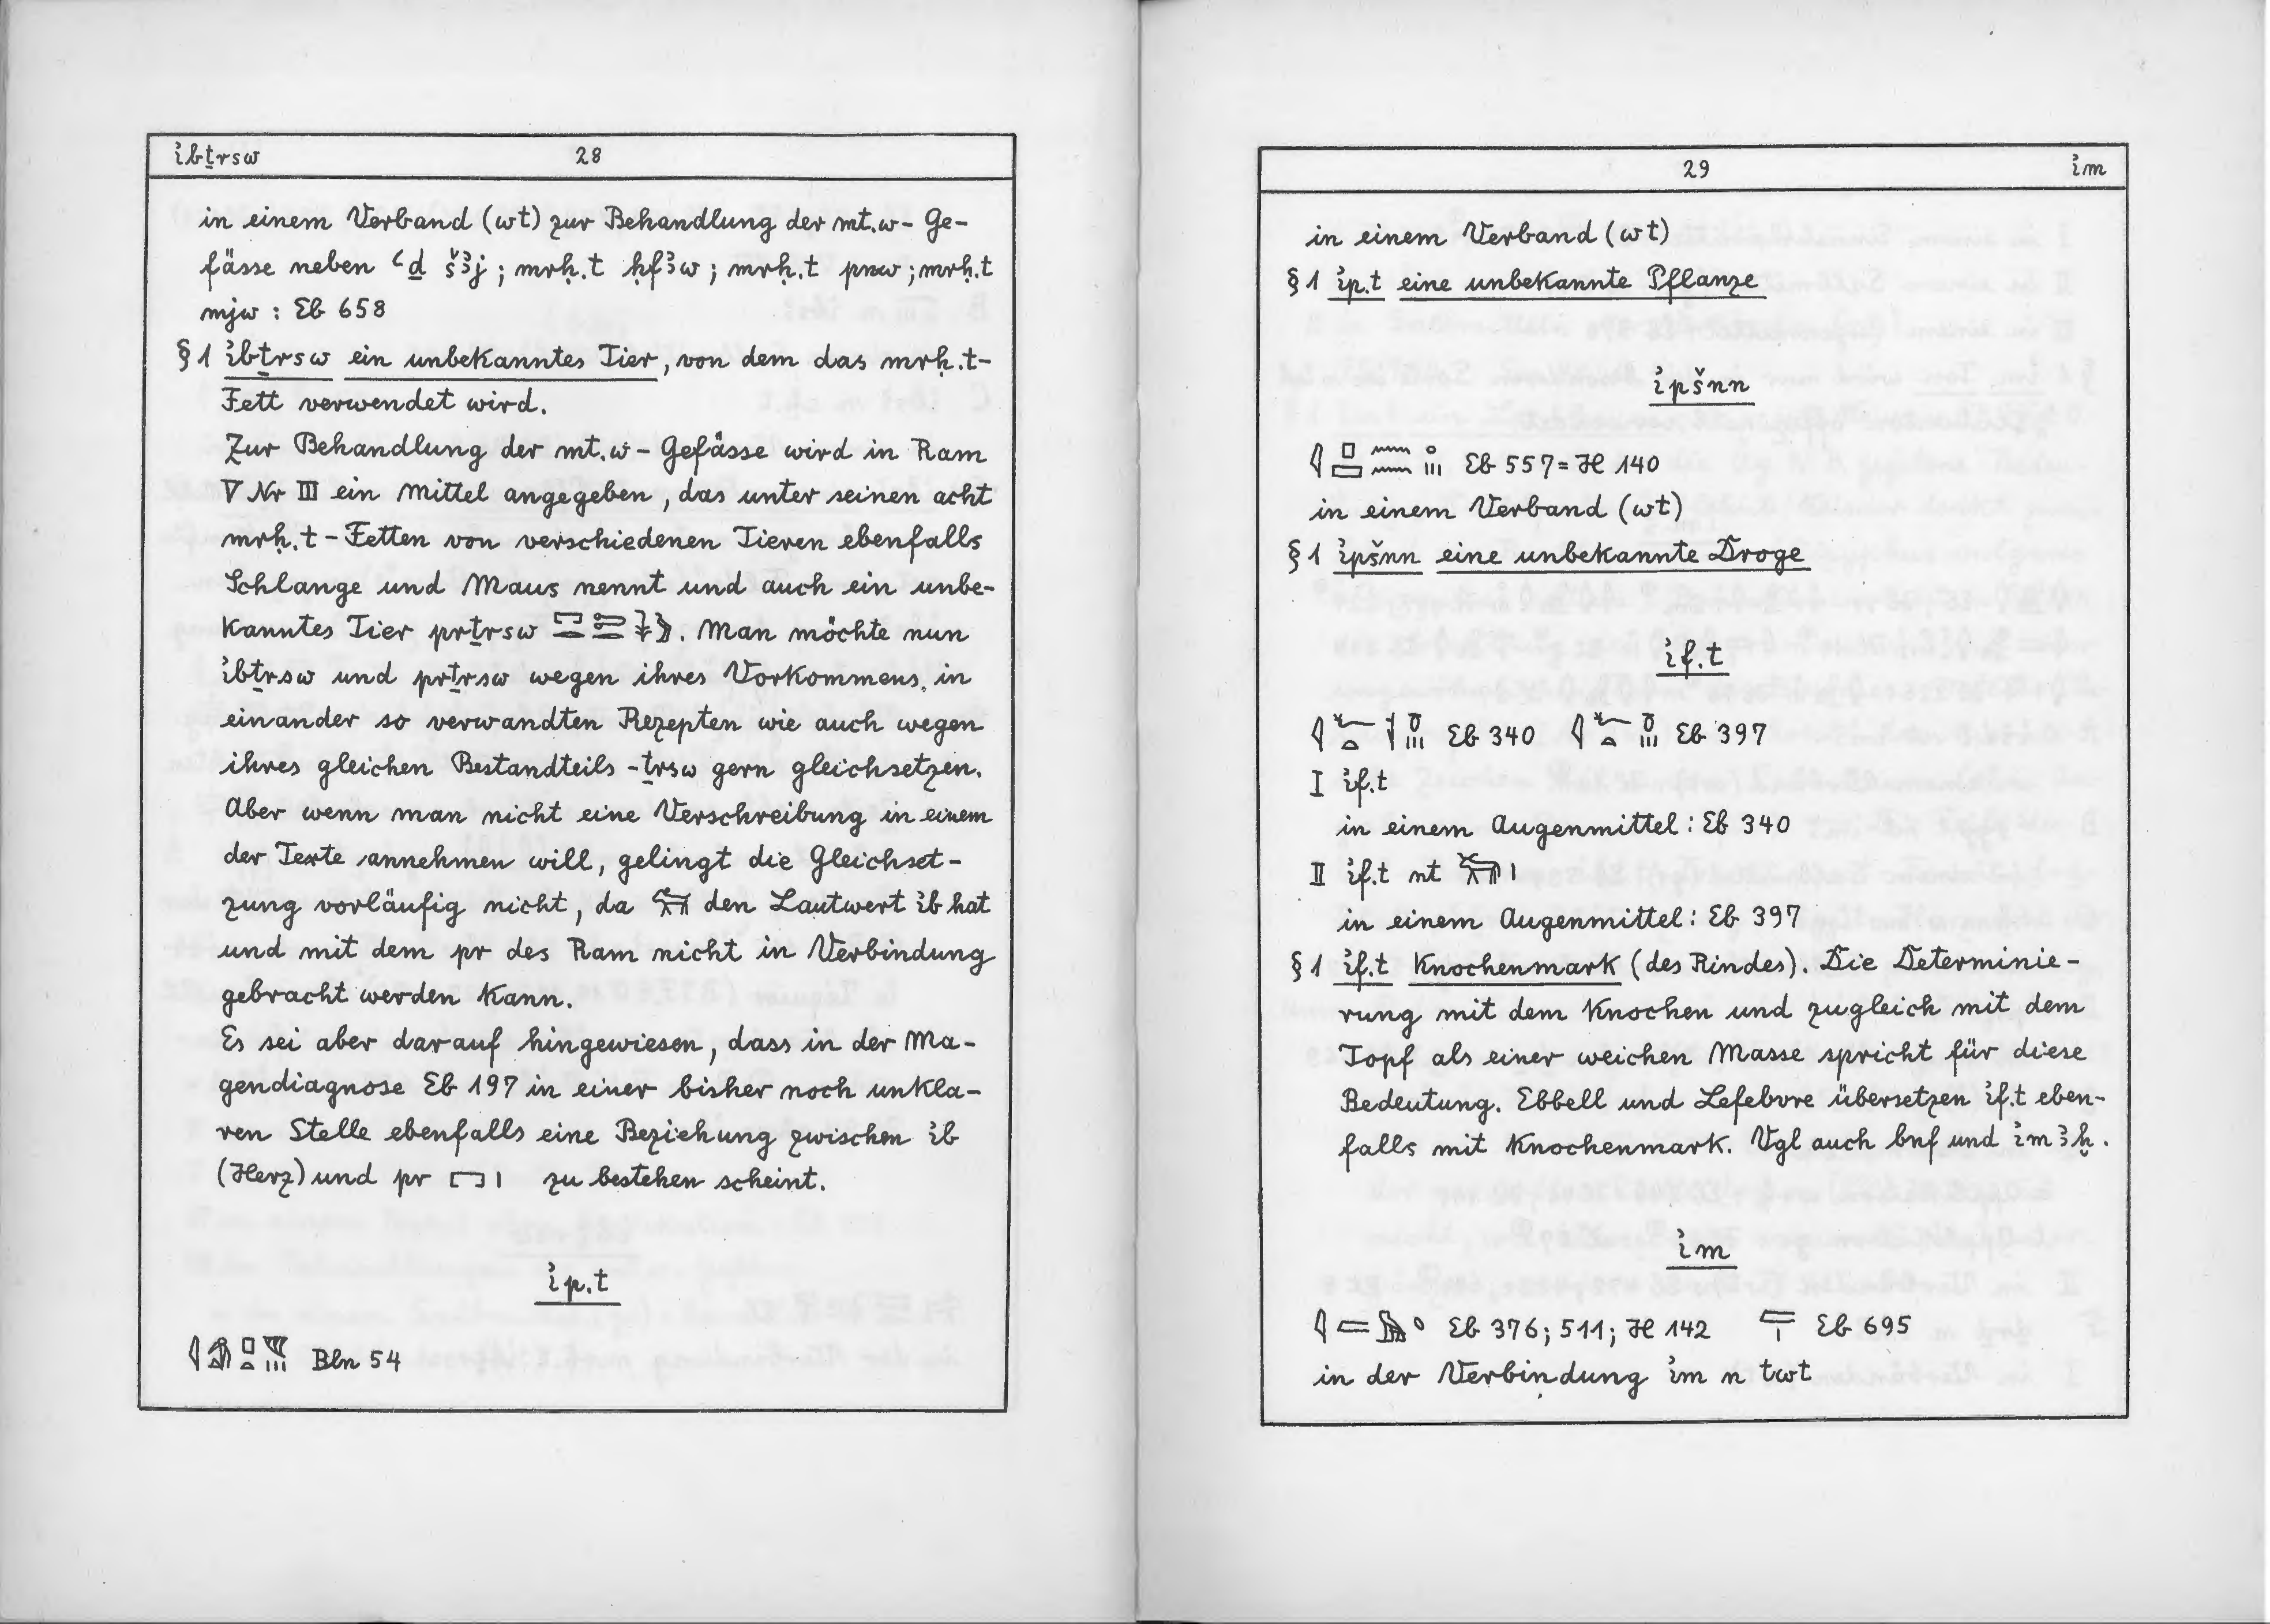 ỉbṯrsw 28
in einem Verband (wt) zur Behandlung der mt.w- Ge-
fässe neben ꜥḏ šꜣj ; mrḥ.t ḥfꜣw ; mrḥ.t pnw ; mrḥ.t
mjw : Eb 658
§ 1 ỉbṯrsw ein unbekanntes Tier, von dem das mrḥ.t-
Fett verwendet wird.
Zur Behandlung der mt.w- Gefässe wird in Ram
V Nr III ein Mittel angegeben, das unter seinen acht
mrḥ.t - Fetten von verschiedenen Tieren ebenfalls
Schlange und Maus nennt und auch ein unbe-
kanntes Tier prṯrsw . Man möchte nun
ỉbṯrsw und prṯrsw wegen ihres Vorkommens in
einander so verwandten Rezepten wie auch wegen
ihres gleichen Bestandteils -ṯrsw gern gleichsetzen.
Aber wenn man nicht eine Verschreibung in einem
der Texte annehmen will, gelingt die Gleichset-
zung vorläufig nicht, da den Lautwert ỉb hat
und mit dem pr des Ram nicht in Verbindung
gebracht werden kann.
Es sei aber darauf hingewiesen, dass in der Ma-
gendiagnose Eb 197 in einer bisher noch unkla-
ren Stelle ebenfalls eine Beziehung zwischen ỉb
(Herz) und pr 𓉐𓏤 zu bestehen scheint.
ỉp.t
Bln 54
29 ỉm
in einem Verband (wt)
§ 1 ỉp.t eine unbekannte Pflanze
ỉpšnn
Eb 557 = H 140
in einem Verband (wt)
§ 1 ỉpšnn eine unbekannte Droge
ỉf.t
Eb 340 Eb 397
I ỉf.t
in einem Augenmittel : Eb 340
II ỉf.t nt
in einem Augenmittel : Eb 397
§ 1 ỉf.t Knochenmark (des Rindes). Die Determinie-
rung mit dem Knochen und zugleich mit dem
Topf als einer weichen Masse spricht für diese
Bedeutung. Ebbell und Lefebvre übersetzen ỉf.t eben-
falls mit Knochenmark. Vgl auch bnf und ỉmꜣḫ.
ỉm
Eb 376; 511; H 142 Eb 695
in der Verbindung ỉm n twt